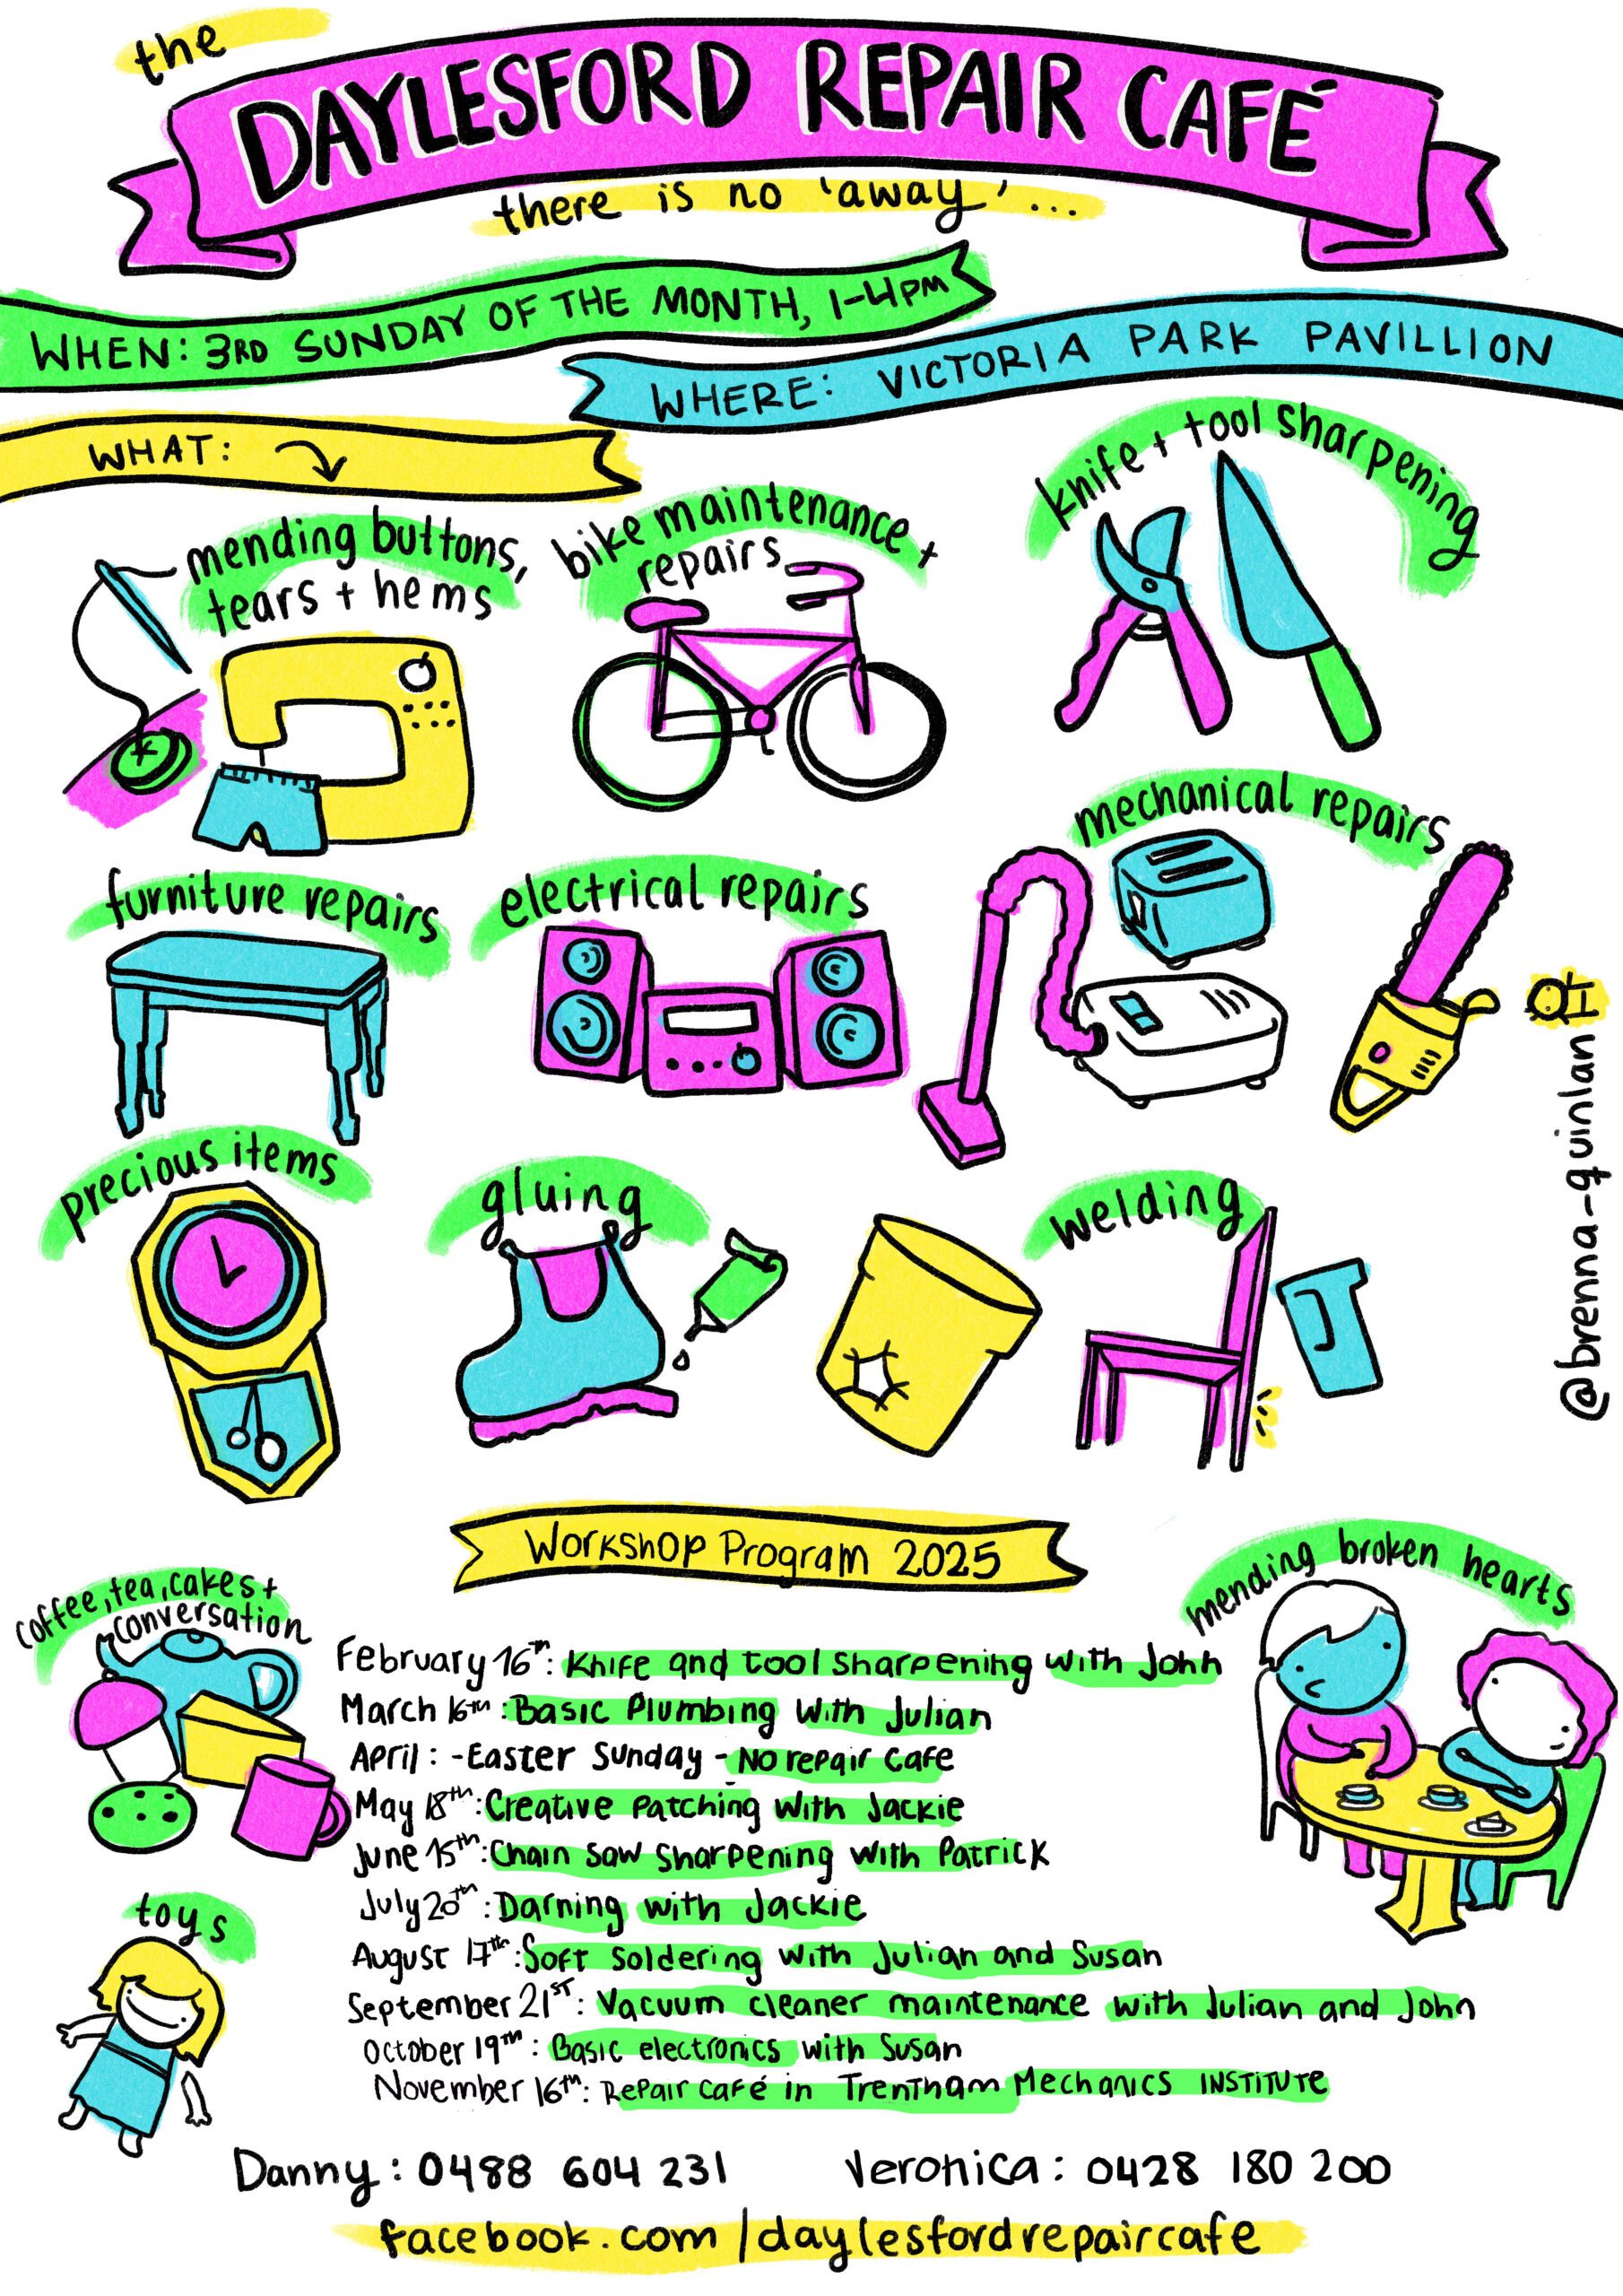 the
DAYLESFORD REPAIR CAFÉ
there is no 'away'...
WHEN: 3RD SUNDAY OF THE MONTH, 1-4PM
WHERE: VICTORIA PARK PAVILLION
WHAT:
knife + tool sharpening
mending buttons,
tears + hems
bike maintenance +
repairs
mechanical repairs
furniture repairs
electrical repairs
precious items
gluing
welding
@brenna-quinlan
Workshop Program 2025
coffee, tea, cakes +
conversation
mending broken hearts
February 16th: Knife and tool sharpening with John
March 16th: Basic Plumbing with Julian
April: - Easter Sunday - No repair cafe
May 18th: Creative Patching with Jackie
June 15th: Chain saw sharpening with Patrick
July 20th: Darning with Jackie
August 17th: Soft soldering with Julian and Susan
September 21ST: Vacuum cleaner maintenance with Julian and John
October 19th: Basic electronics with Susan
November 16th: Repair café in Trentham Mechanics INSTITUTE
toys
Danny: 0488 604 231
Veronica: 0428 180 200
facebook.com/daylesfordrepaircafe